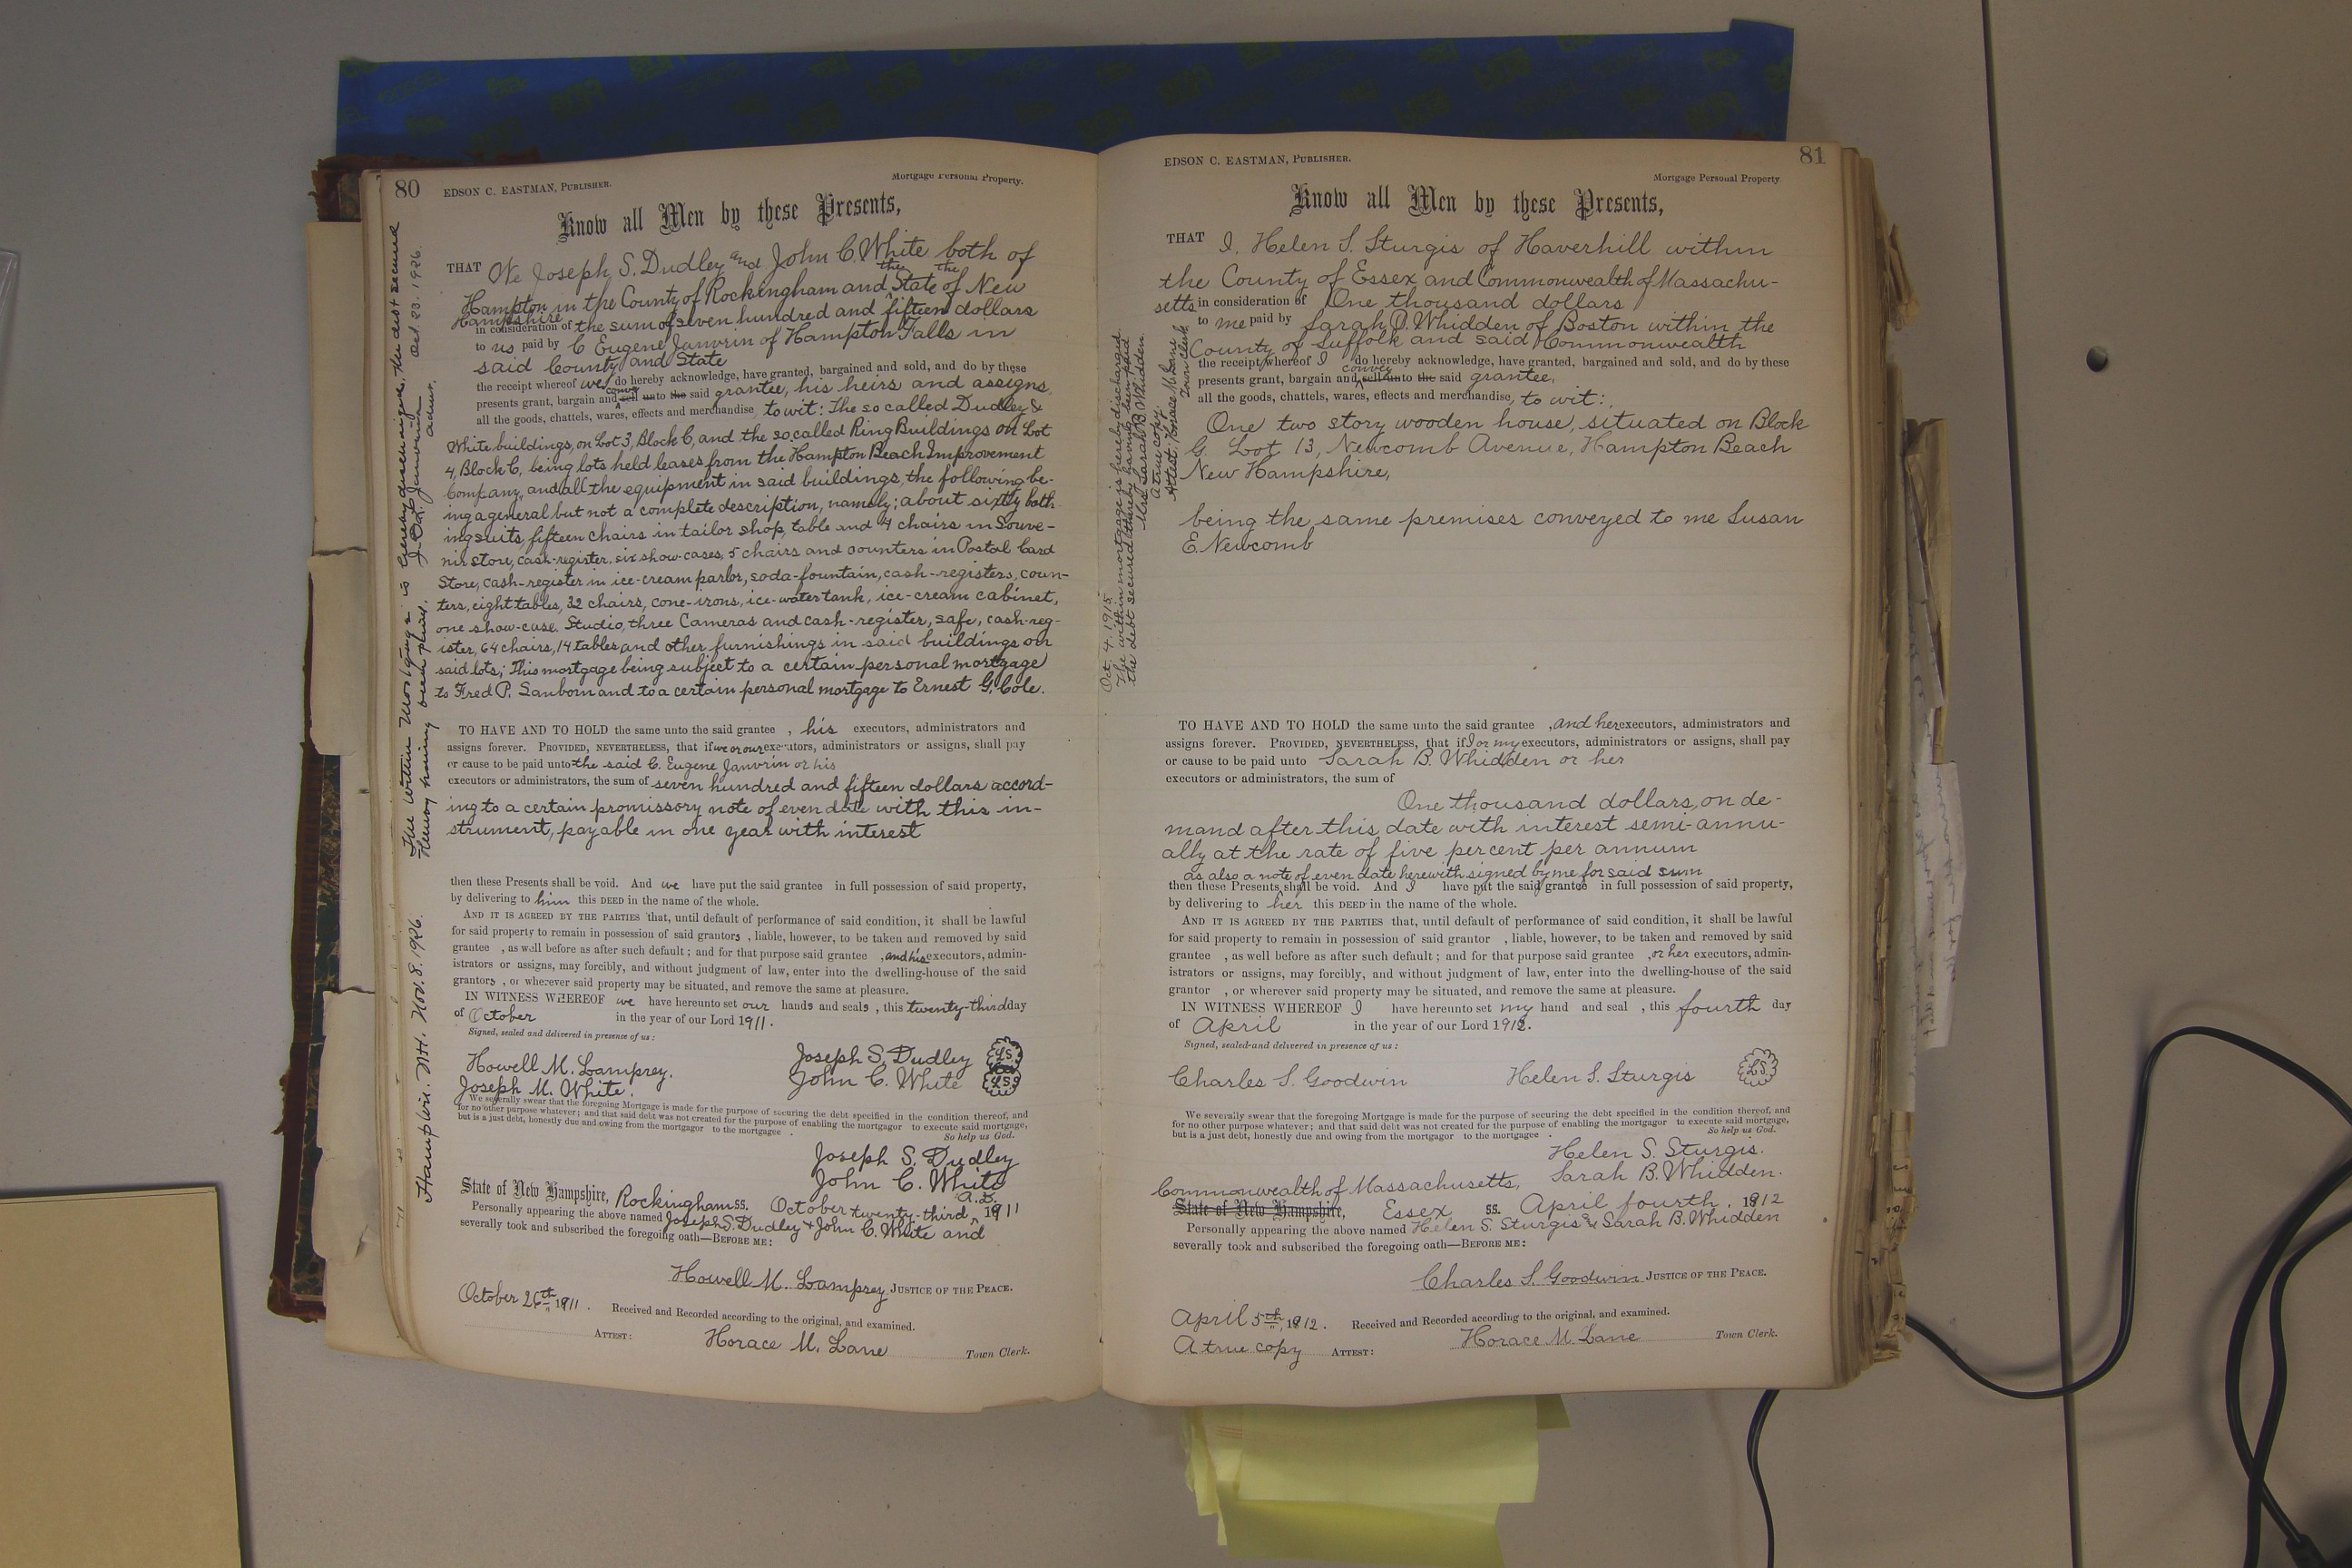 80
EDSON C. EASTMAN, PUBLISHER.
Mortgage Personal Property.
Know all Men by these Presents,
THAT We Joseph S. Dudley and John C. White both of
Hampton in the County of Rockingham and the State of the New
Hampshire
in consideration of the sum of seven hundred and fifteen dollars
to us paid by C Eugene Janvrin of Hampton Falls in
said County and State
the receipt whereof we do hereby acknowledge, have granted, bargained and sold, and do by these
presents grant, bargain and convey sell unto the said grantee, his heirs and assigns,
all the goods, chattels, wares, effects and merchandise, to wit: The so called Dudley &
White buildings, on Lot 3, Block C, and the so called Ring Buildings on Lot
4, Block C, being lots held leases from the Hampton Beach Improvement
Company, and all the equipment in said buildings, the following be-
ing a general but not a complete description, namely; about sixty bath-
ing suits, fifteen chairs in tailor shop, table and 4 chairs in Souve-
nir store, cash-register. six show-cases, 5 chairs and counters in Postal Card
Store, cash-register in ice-cream parlor, soda-fountain, cash-registers, coun-
ters, eight tables, 32 chairs, cone-irons, ice-water tank, ice-cream cabinet,
one show-case. Studio, three Cameras and cash-register, safe, cash-reg-
ister, 64 chairs, 14 tables and other furnishings in said buildings on
said lots; This mortgage being subject to a certain personal mortgage
to Fred P. Sanborn and to a certain personal mortgage to Ernest G. Cole.
TO HAVE AND TO HOLD the same unto the said grantee , his executors, administrators and
assigns forever. PROVIDED, NEVERTHELESS, that if we or our executors, administrators or assigns, shall pay
or cause to be paid unto the said C. Eugene Janvrin or his
executors or administrators, the sum of seven hundred and fifteen dollars accord-
ing to a certain promissory note of even date with this in-
strument, payable in one year with interest
then these Presents shall be void. And we have put the said grantee in full possession of said property,
by delivering to him this DEED in the name of the whole.
AND IT IS AGREED BY THE PARTIES that, until default of performance of said condition, it shall be lawful
for said property to remain in possession of said grantors , liable, however, to be taken and removed by said
grantee , as well before as after such default; and for that purpose said grantee , and his executors, admin-
istrators or assigns, may forcibly, and without judgment of law, enter into the dwelling-house of the said
grantors , or wherever said property may be situated, and remove the same at pleasure.
IN WITNESS WHEREOF we have hereunto set our hands and seals , this twenty-third day
of October in the year of our Lord 1911.
Signed, sealed and delivered in presence of us:
Howell M. Lamprey. Joseph S. Dudley LS
Joseph M. White. John C. White LS
We severally swear that the foregoing Mortgage is made for the purpose of securing the debt specified in the condition thereof, and
for no other purpose whatever; and that said debt was not created for the purpose of enabling the mortgagor to execute said mortgage,
but is a just debt, honestly due and owing from the mortgagor to the mortgagee .
So help us God.
Joseph S. Dudley
John C. White
State of New Hampshire, Rockingham ss. October twenty-third, A.D. 1911
Personally appearing the above named Joseph S. Dudley & John C. White and
severally took and subscribed the foregoing oath—BEFORE ME:
Howell M. Lamprey JUSTICE OF THE PEACE.
October 26th, 1911. Received and Recorded according to the original, and examined.
ATTEST: Horace M. Lane Town Clerk.
Hampton. N.H. Nov. 8. 1926. The within Mortgage is hereby discharged, the debt secured
thereby having been paid. Oct 23. 1926.
admr.
81
EDSON C. EASTMAN, PUBLISHER.
Mortgage Personal Property
Know all Men by these Presents,
THAT I, Helen S. Sturgis of Haverhill within
the County of Essex and Commonwealth of Massachu-
setts in consideration of One thousand dollars
to me paid by Sarah B. Whidden of Boston within the
County of Suffolk and said Commonwealth
the receipt whereof I do hereby acknowledge, have granted, bargained and sold, and do by these
presents grant, bargain and convey sell unto the said grantee,
all the goods, chattels, wares, effects and merchandise, to wit:
One two story wooden house, situated on Block
G. Lot 13, Newcomb Avenue, Hampton Beach
New Hampshire,
being the same premises conveyed to me Susan
E. Newcomb
TO HAVE AND TO HOLD the same unto the said grantee , and her executors, administrators and
assigns forever. PROVIDED, NEVERTHELESS, that if I or my executors, administrators or assigns, shall pay
or cause to be paid unto Sarah B. Whidden or her
executors or administrators, the sum of
One thousand dollars, on de-
mand after this date with interest semi-annu-
ally at the rate of five per cent per annum
as also a note of even date herewith signed by me for said sum
then these Presents shall be void. And I have put the said grantee in full possession of said property,
by delivering to her this DEED in the name of the whole.
AND IT IS AGREED BY THE PARTIES that, until default of performance of said condition, it shall be lawful
for said property to remain in possession of said grantor , liable, however, to be taken and removed by said
grantee , as well before as after such default; and for that purpose said grantee , or her executors, admin-
istrators or assigns, may forcibly, and without judgment of law, enter into the dwelling-house of the said
grantor , or wherever said property may be situated, and remove the same at pleasure.
IN WITNESS WHEREOF I have hereunto set my hand and seal , this fourth day
of April in the year of our Lord 1912.
Signed, sealed and delivered in presence of us:
Charles S. Goodwin Helen S. Sturgis LS
We severally swear that the foregoing Mortgage is made for the purpose of securing the debt specified in the condition thereof, and
for no other purpose whatever; and that said debt was not created for the purpose of enabling the mortgagor to execute said mortgage,
but is a just debt, honestly due and owing from the mortgagor to the mortgagee .
So help us God.
Helen S. Sturgis.
Sarah B. Whidden.
Commonwealth of Massachusetts,
State of New Hampshire, Essex ss. April fourth, 1912
Personally appearing the above named Helen S. Sturgis & Sarah B. Whidden
severally took and subscribed the foregoing oath—BEFORE ME:
Charles S. Goodwin JUSTICE OF THE PEACE.
April 5th, 1912. Received and Recorded according to the original, and examined.
A true copy ATTEST: Horace M. Lane Town Clerk.
Oct. 4. 1915
The within mortgage is hereby discharged
the debt secured thereby having been paid
Mrs. Sarah B Whidden.
A true copy.
Attest: Horace M. Lane
Town Clerk